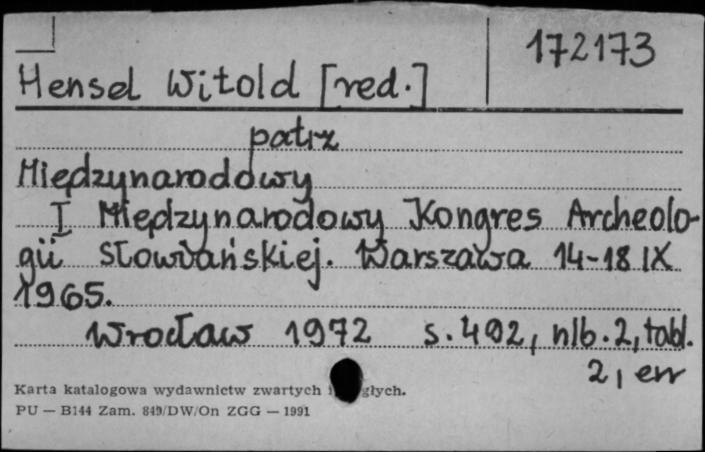 172173
Hensel Witold [red.]
patrz
Międzynarodowy
I Międzynarodowy Kongres Archeolo-
gii Słowiańskiej. Warszawa 14-18 IX
1965.
Wrocław 1972 s. 492, nlb. 2, tabl.
2, err
Karta katalogowa wydawnictw zwartych głych.
PU — B144 Zam. 849/DW/On ZGG — 1991